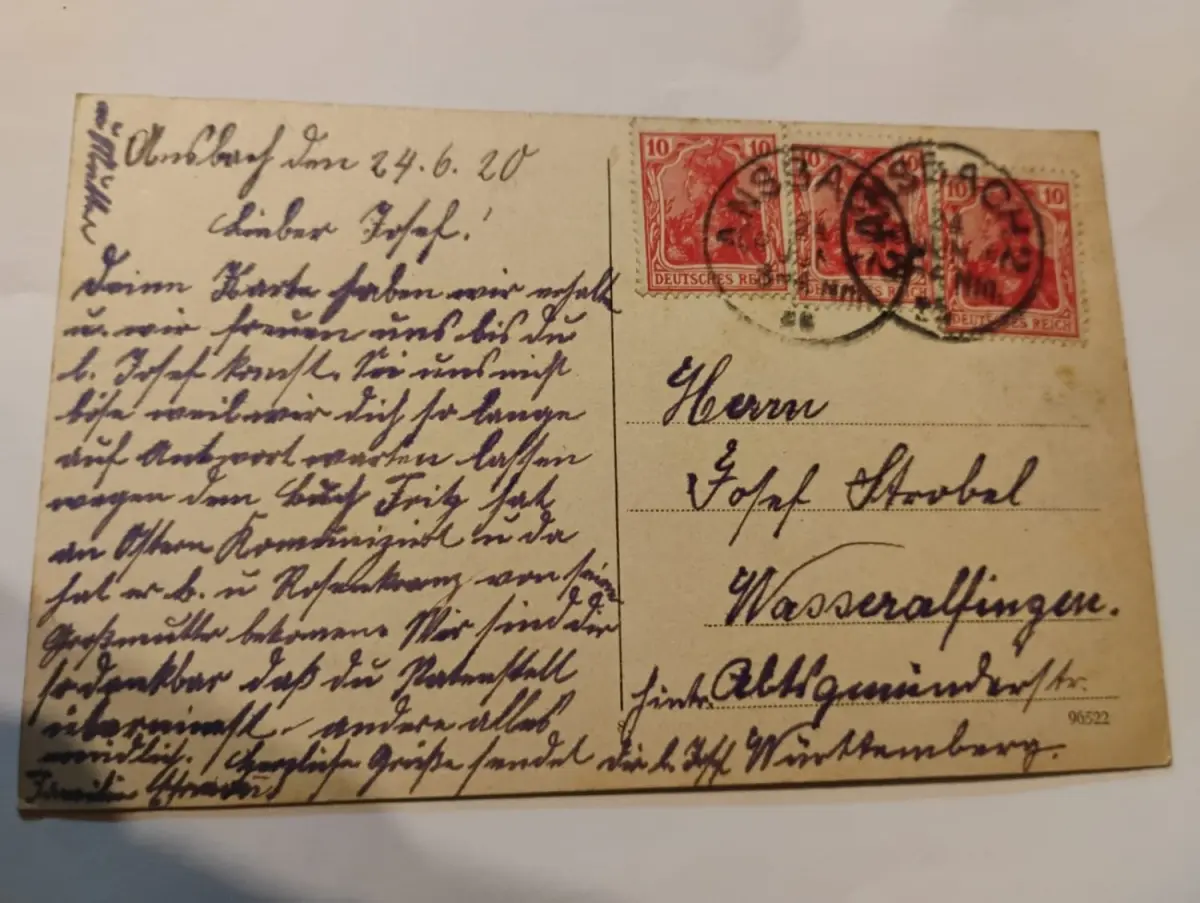 Ansbach den 24.6.20
Lieber Josef!
Deine Karte haben wir erhalt
u. wir freuen uns bis du
l. Josef komst. Sei uns nicht
böse weil wir dich so lange
auf Antwort warten lassen
wegen dem Buch Fritz hat
an Ostern Komuniziert u da
hat er b. u Rosenkranz von seiner
Großmutter bekomene Wir sind dir
so dankbar daß du Patenstell
übernimst - andere alles
mündlich. Herzliche Grüße sendet dir l. Josf
Familie
u Mutter
10 10
DEUTSCHES REICH
10
DEUTSCHES REICH
10 10
DEUTSCHES REICH
ANSBACH 2
ANSBACH 2
Herrn
Josef Strobel
Wasseralfingen.
hintr. Abtsgmünderstr.
96522
Württemberg.